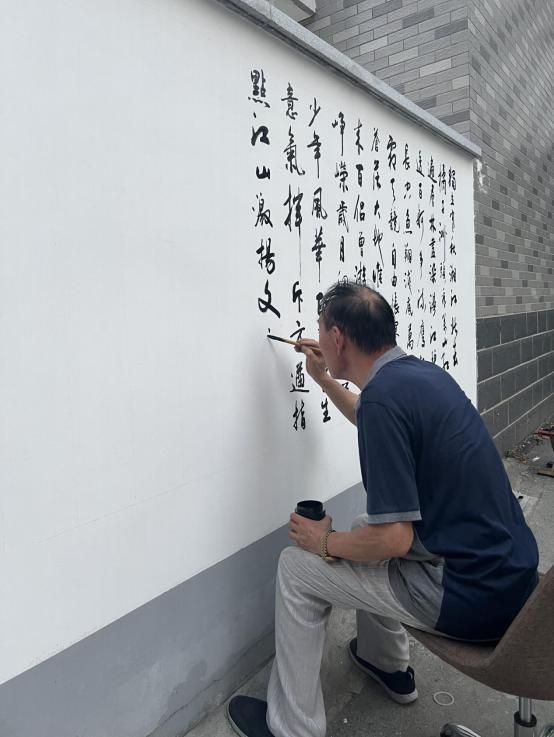 獨立寒秋湘江北去
橘子洲頭看萬山紅
遍層林盡染漫江碧
透百舸爭流鷹擊
長空魚翔淺底萬
霜天競自由悵寥
蒼茫大地誰
來百侶曾遊
崢嶸歲月
少年風華生
意氣揮斥方遒指
點江山激揚文